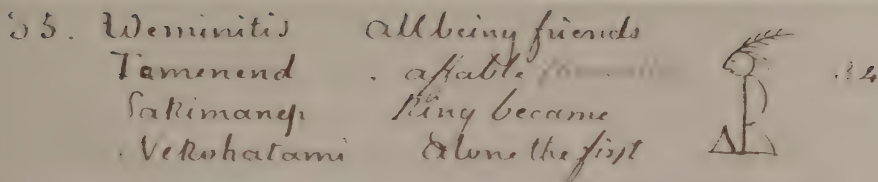 35. Weminitis All being friends
Tamenend . affable
Sakimanep King became
Nekohatami Alone the first